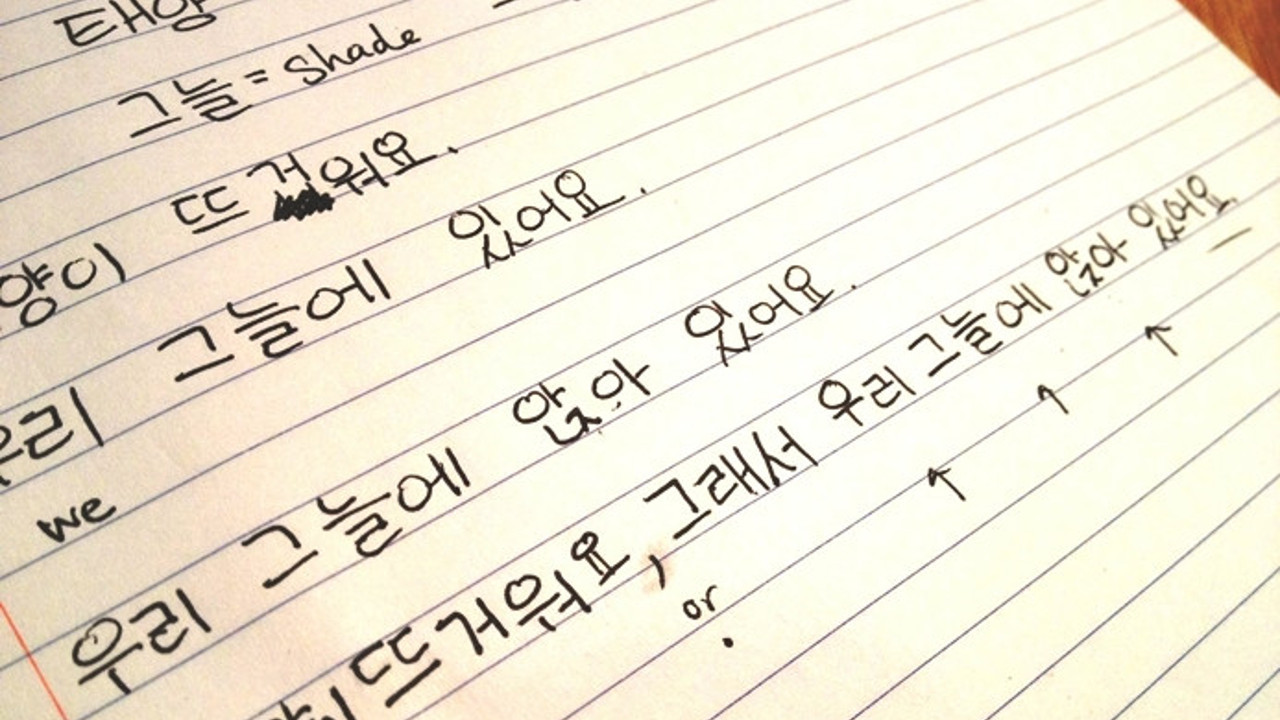 태양
그늘 = shade
양이 뜨거워요.
우리 그늘에 있어요.
we
우리 그늘에 앉아 있어요.
뜨거워요, 그래서 우리 그늘에 앉아 있어요.
or .